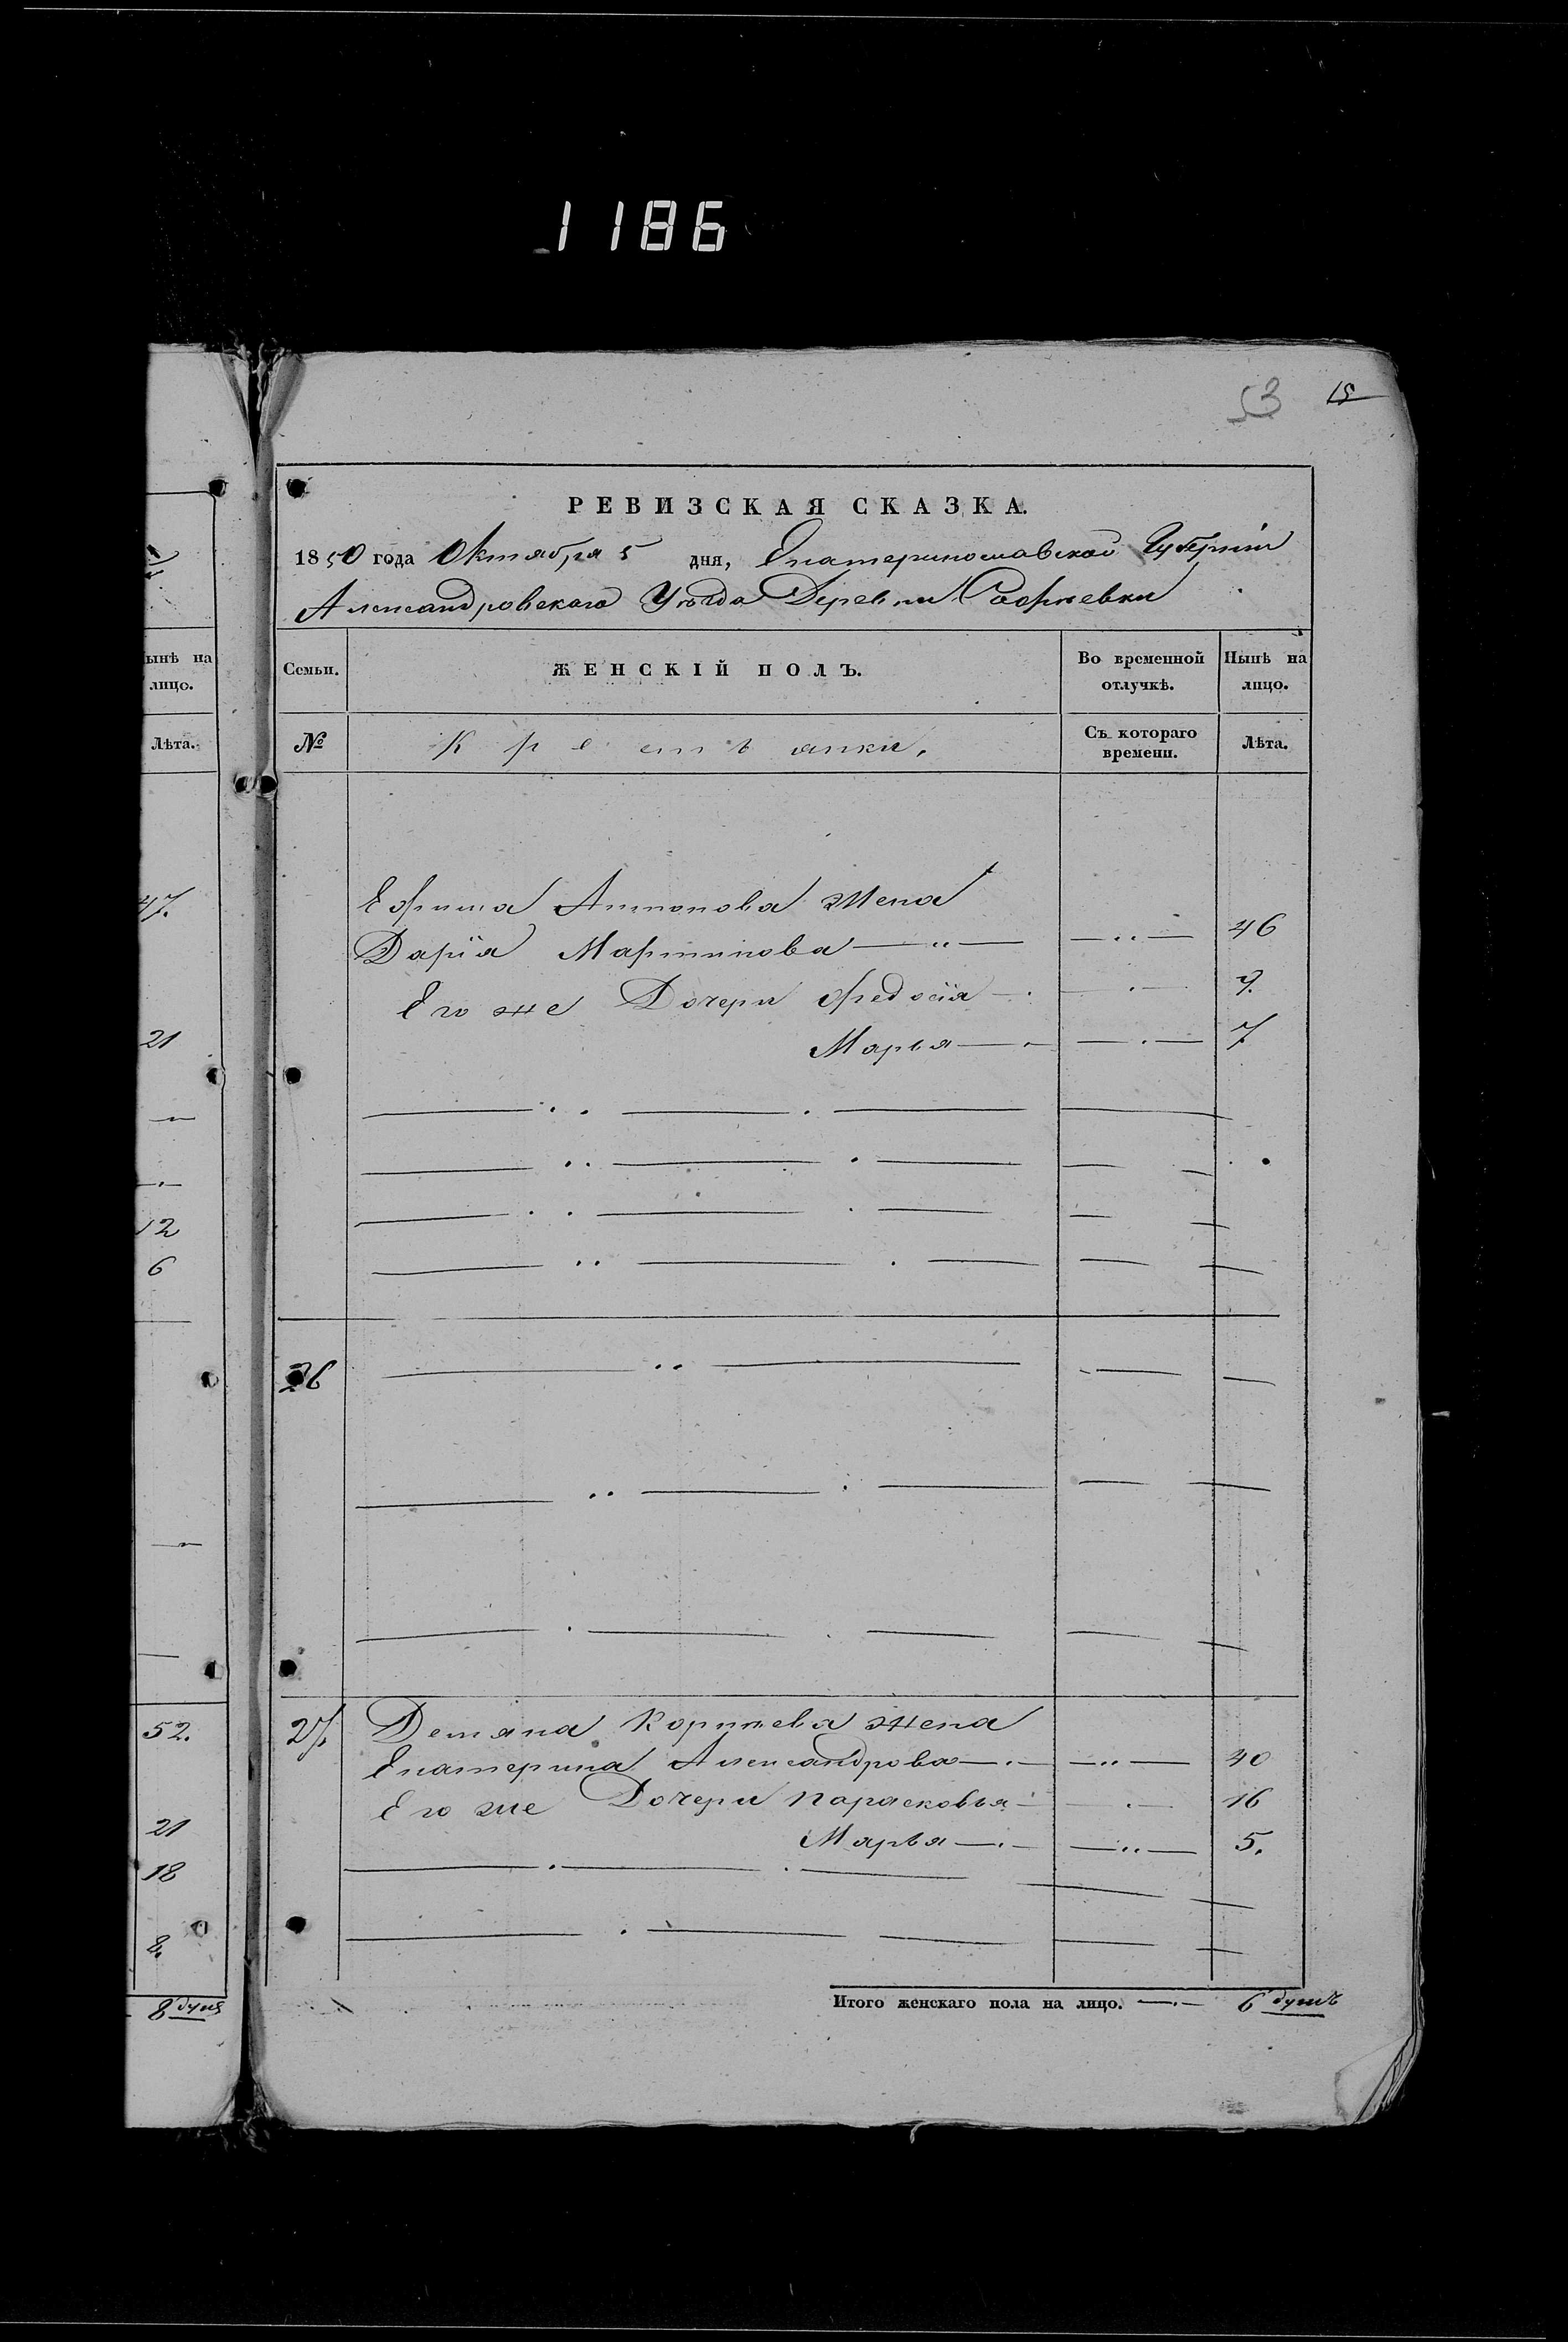 1186
53 15
РЕВИЗСКАЯ СКАЗКА.
1850 года Октября 5 дня, Екатеринославской Губерніи
Александровскаго Уѣзда Деревни Софіевки
Семьи. ЖЕНСКІЙ ПОЛЪ. Во временной отлучкѣ. Нынѣ на лицо.
№ Крестьянки. Съ котораго времени. Лѣта.
Ефима Антонова жена
Дарія Мартинова 46
Его же Дочери Федосія 9.
Марья 7
26
27. Демяна Корнѣева жена
Екатерина Александрова 40
Его же Дочери Парасковья 16
Марья 5.
Итого женскаго пола на лицо. 6 душъ
ынѣ на
лицо.
Лѣта.
47.
21
12
6
52.
21
18
8.
8 душ